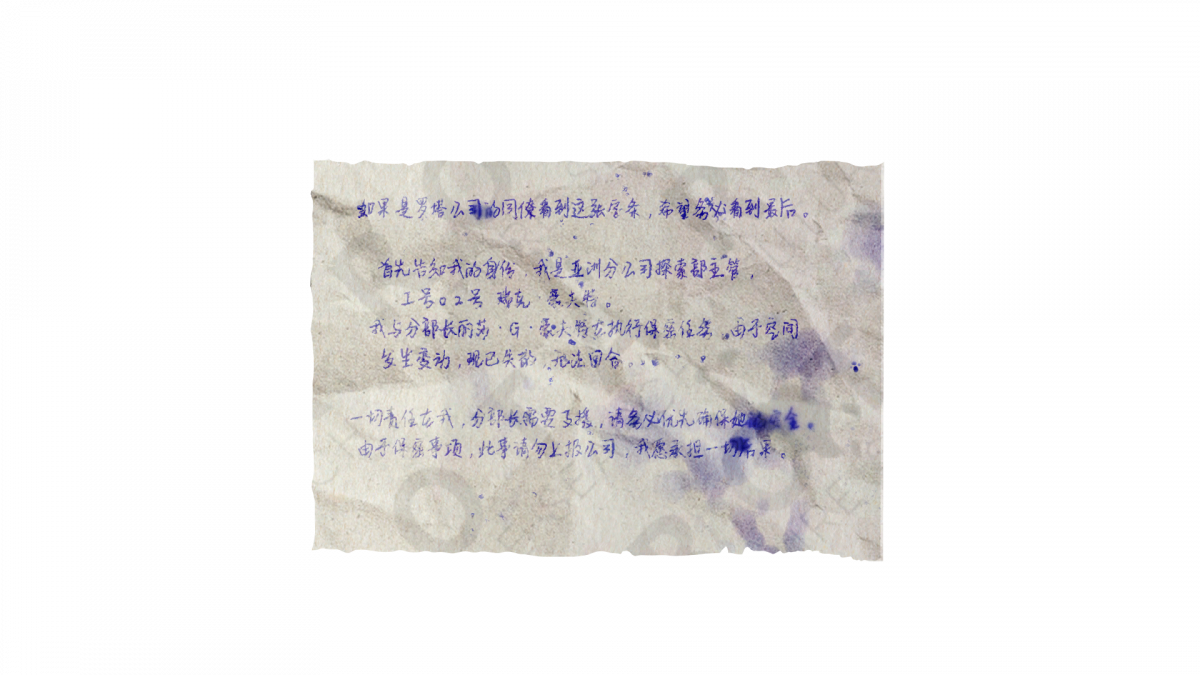 如果是罗塔公司的同僚看到这张字条，希望务必看到最后。
首先告知我的身份，我是亚洲分公司探索部主管，
工号02号 瑞克·霍夫特。
我与分部长丽莎·G·霍夫特在执行保密任务，由于空间
发生变动，现已失散，无法回合。
一切责任在我，分部长需要支援，请务必优先确保她的安全。
由于保密事项，此事请勿上报公司，我愿承担一切后果。